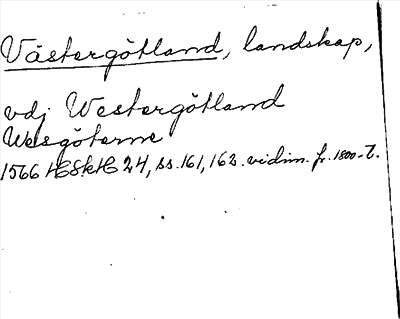 Västergötland, landskap,
vdj Westergötland
Wesgöterne
1566 HSkH 24, ss. 161, 162. vidim. fr. 1800-t.